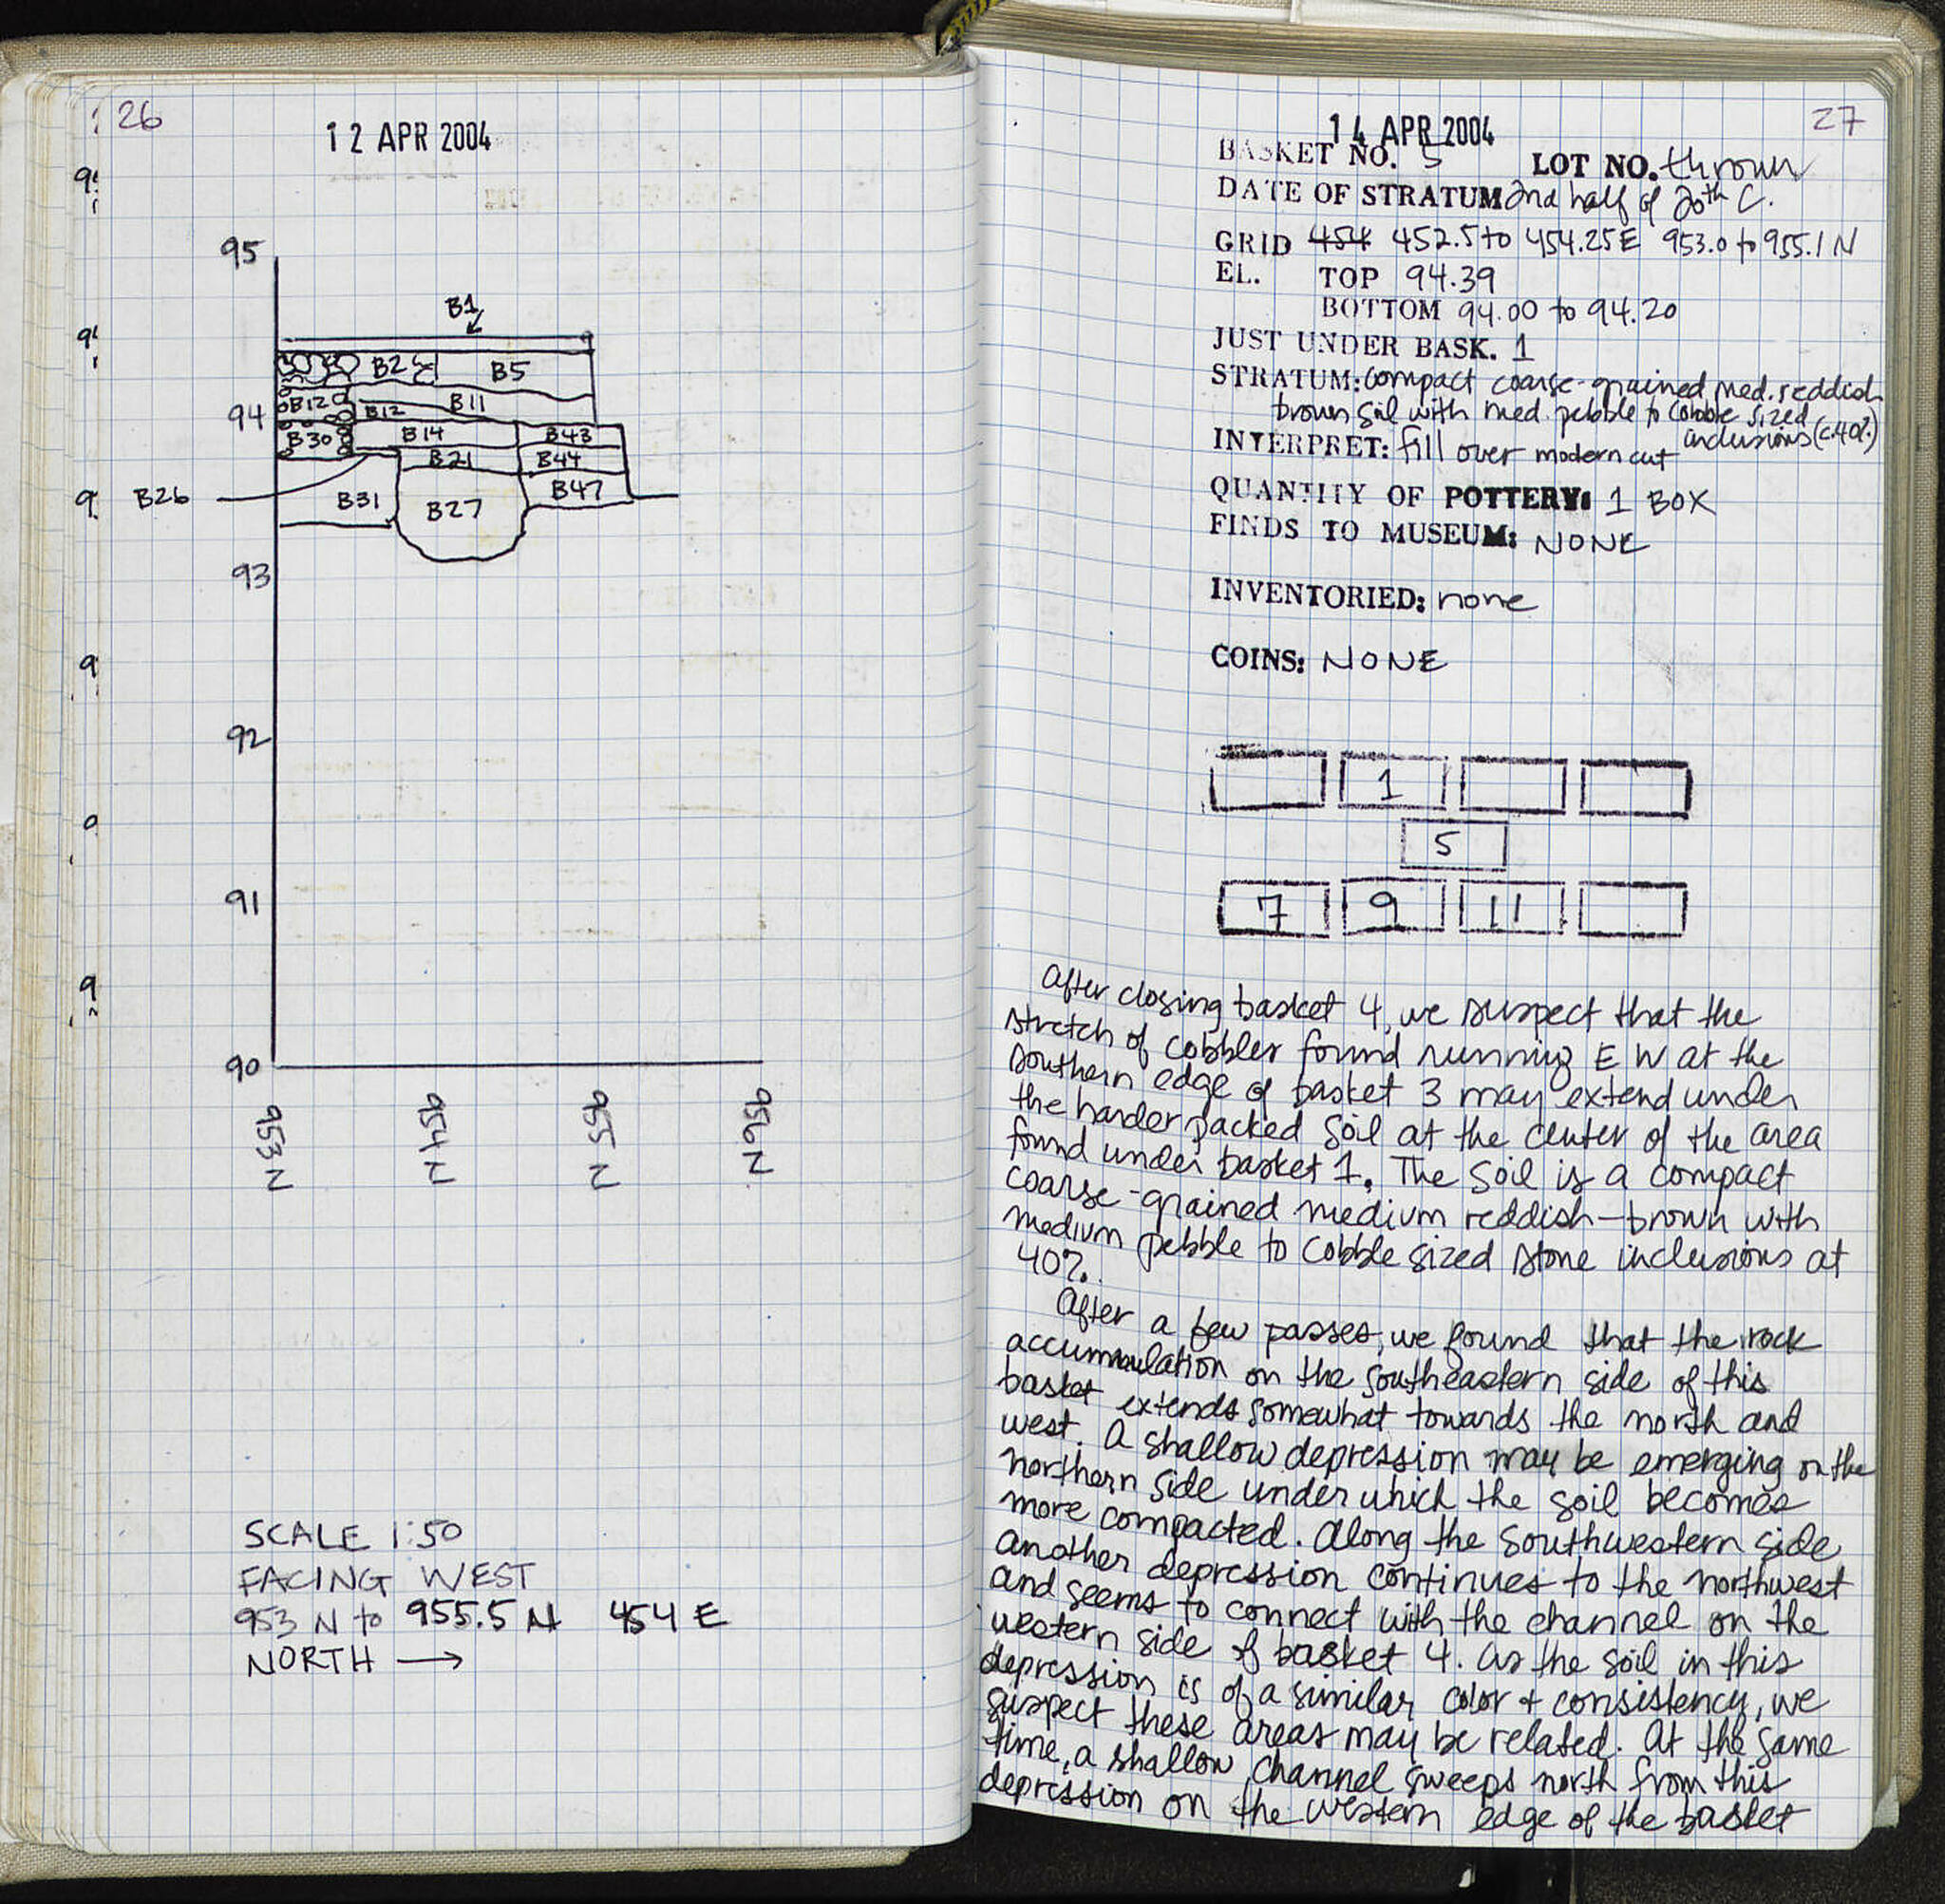 26
12 APR 2004
95
B1
B2
B5
B12
B12
B11
94
B30
B14
B43
B21
B44
B26
B31
B27
B47
93
92
91
90
953 N
954 N
955 N
956 N
SCALE 1:50
FACING WEST
953 N to 955.5 N 454 E
NORTH →
27
14 APR 2004
BASKET NO. 5 LOT NO. thrown
DATE OF STRATUM 2nd half of 20th C.
GRID 454 452.5 to 454.25 E 953.0 to 955.1 N
EL. TOP 94.39
BOTTOM 94.00 to 94.20
JUST UNDER BASK. 1
STRATUM: compact coarse-grained med. reddish
brown soil with med. pebble to cobble sized
inclusions (c.40%)
INTERPRET: fill over modern cut
QUANTITY OF POTTERY: 1 BOX
FINDS TO MUSEUM: NONE
INVENTORIED: none
COINS: NONE
1
5
7 9 11
After closing basket 4, we suspect that the
stretch of cobbles found running E W at the
southern edge of basket 3 may extend under
the harder packed soil at the center of the area
found under basket 1. The soil is a compact
coarse-grained medium reddish-brown with
medium pebble to cobble sized stone inclusions at
40%.
After a few passes, we found that the rock
accumulation on the southeastern side of this
basket extends somewhat towards the north and
west. A shallow depression may be emerging on the
northern side under which the soil becomes
more compacted. Along the southwestern side
another depression continues to the northwest
and seems to connect with the channel on the
western side of basket 4. As the soil in this
depression is of a similar color + consistency, we
suspect these areas may be related. At the same
time, a shallow channel sweeps north from this
depression on the western edge of the basket